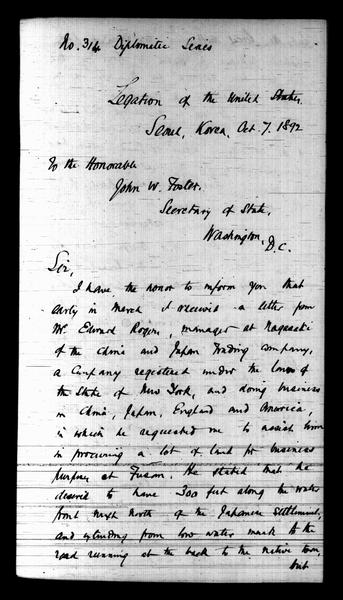 No. 314 Diplomatic Series
Legation of the United States.
Seoul, Korea, Oct. 7. 1892
To the Honorable
John W. Foster.
Secretary of State,
Washington, D.C.
Sir,
I have the honor to inform you that
early in March I received a letter from
Mr. Edward Rogers, manager at Nagasaki
of the China and Japan Trading Company,
a Company registered under the laws of
the State of New York, and doing business
in China, Japan, England and America,
in which he requested me to assist him
in procuring a lot of land for business
purposes at Fusan. He stated that he
desired to have 300 feet along the water
front next north of the Japanese Settlement,
and extending from low water mark to the
road running at the back to the native town,
but